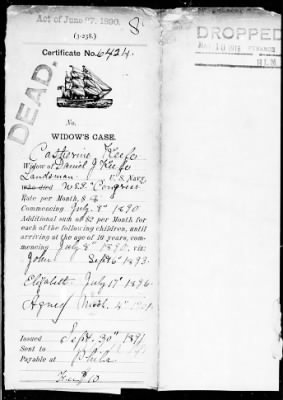 Act of June 27, 1890.
8
(3-258.)
DROPPED
Certificate No. 6424.
DEAD.
No.
WIDOW'S CASE.
Catherine Keefe
Widow of Daniel J Keefe
Landsman U. S. Navy
U.S.S. "Congress
Rate per Month, $ 8
Commencing July 8" 1890
Additional sum of $2 per Month for
each of the following children, until
arriving at the age of 16 years, com-
mencing July 8" 1890, viz:
John Sept 6" 1893
Elizabeth July 17" 1896
Agnes Mch. 4" 1901
Issued Sept. 30" 1891
Sent to
Payable at Phila